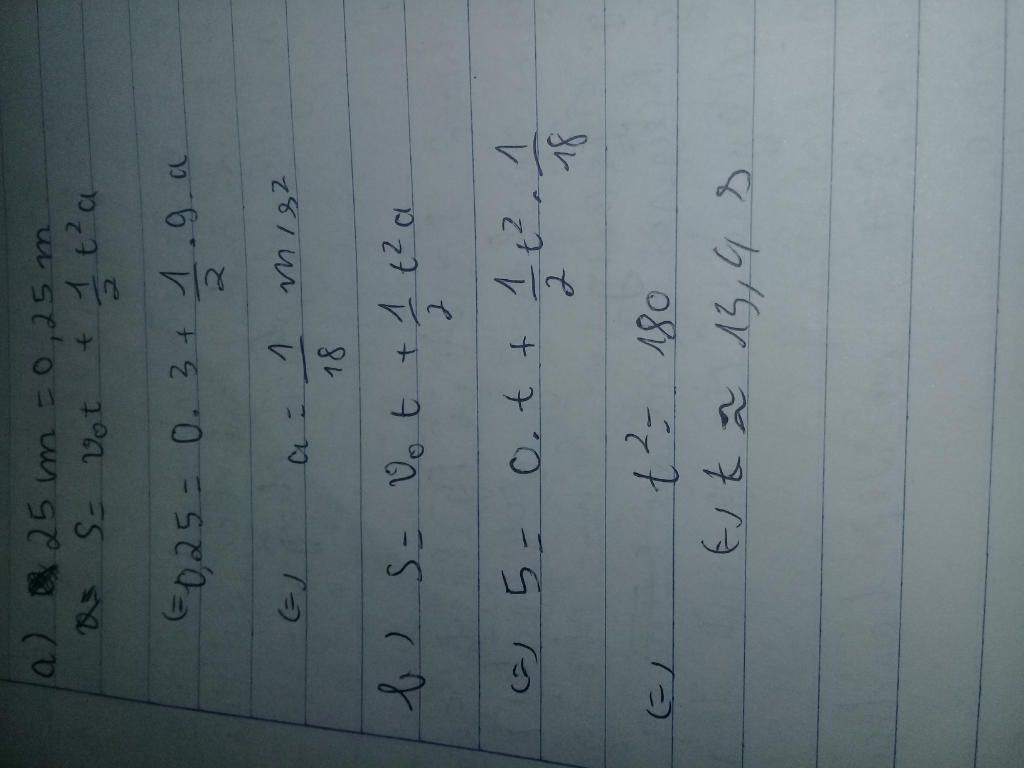 a) 25 cm = 0,25 m
S = v₀t + 1/2 t²a
(=) 0,25 = 0.3 + 1/2 .9.a
(=) a = 1/18 m/s²
b) S = v₀t + 1/2 t²a
(=) 5 = 0.t + 1/2 t² . 1/18
(=) t² = 180
(=) t ≈ 13,4 s